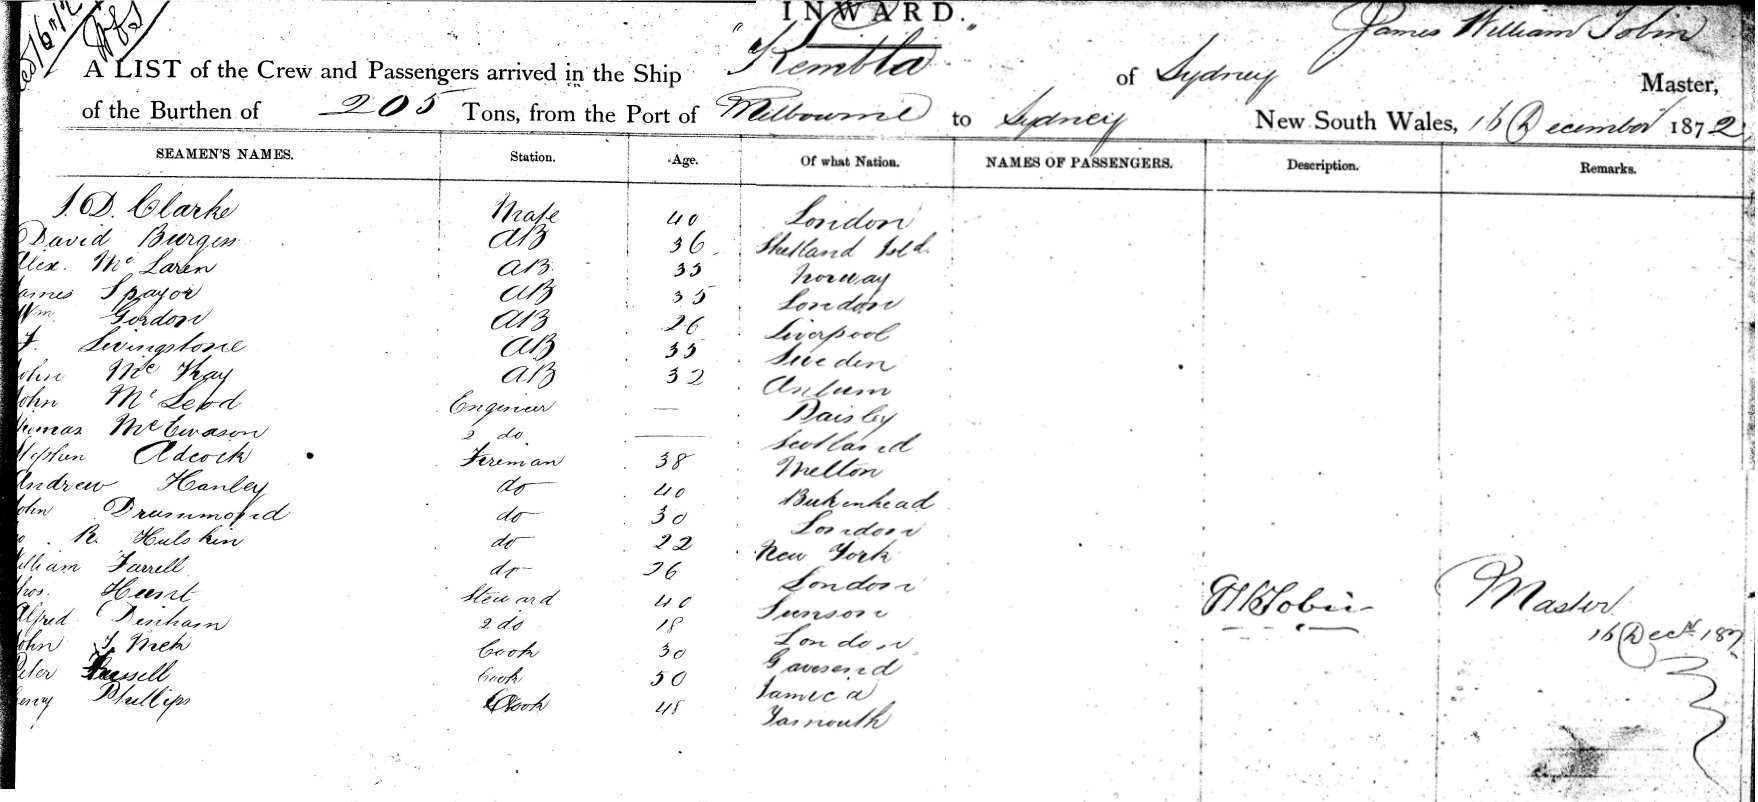 INWARD.
James William Tobin
A LIST of the Crew and Passengers arrived in the Ship "Kembla" of Sydney Master,
of the Burthen of 205 Tons, from the Port of Melbourne to Sydney New South Wales, 16 December 1872
SEAMEN'S NAMES. Station. Age. Of what Nation. NAMES OF PASSENGERS. Description. Remarks.
D. Clarke Mate 40 London
David Burgess AB 36 Shetland Isld.
Alex. Mc Laren AB 33 Norway
James Spayor AB 35 London
Wm. Gordon AB 26 Liverpool
Livingstone AB 35 Sweden
John Mc Kay AB 32
John Mc Leod Engineer — Paisley
Thomas McEwason 2 do — Scotland
Stephen Adcock Fireman 38 Melton
Andrew Hanley do 40 Birkenhead
John Drummond do 30 London
R. Hulskin do 22 New York
William Farrell do 26 London
Thos. Hunt Steward 40
Alfred Dinham 2 do 18 London
John Cook 30 Gavesend
Peter Russell Cook 50 Jameca
Henry Phillips Cook 48 Yarmouth
JWTobin Master
16 Decr. 187